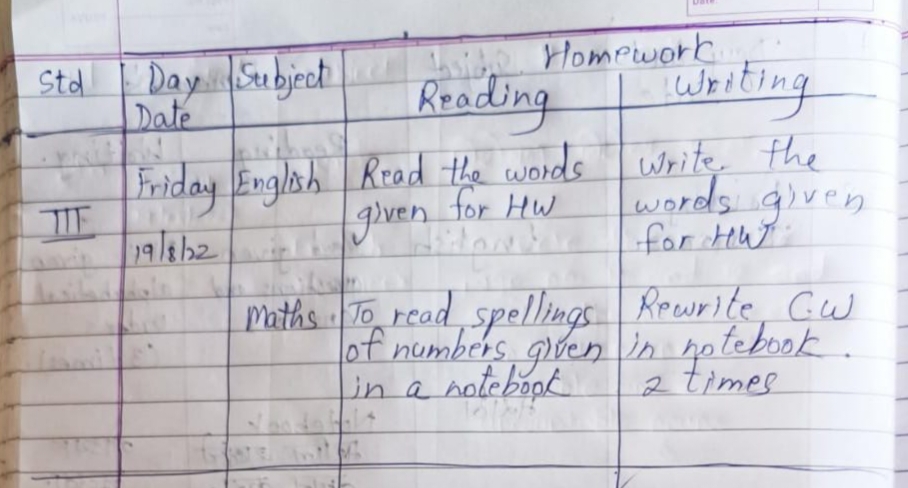 Homework
Std Day Subject Reading Writing
Date
Friday English Read the words Write the
III given for HW words given
19/8/22 for HW
Maths. To read spellings Rewrite C.W
of numbers given in notebook.
in a notebook 2 times